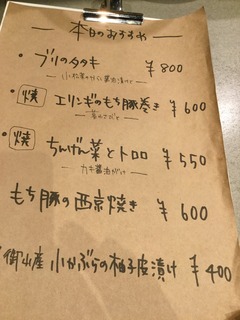 本日のおすすめ
・ブリのタタキ ¥800
・焼 エリンギのもち豚巻き ¥600
・焼 ちんげん菜とトロロ ¥550
カキ醤油がけ
もち豚の西京焼き ¥600
小かぶらの柚子皮漬け ¥400